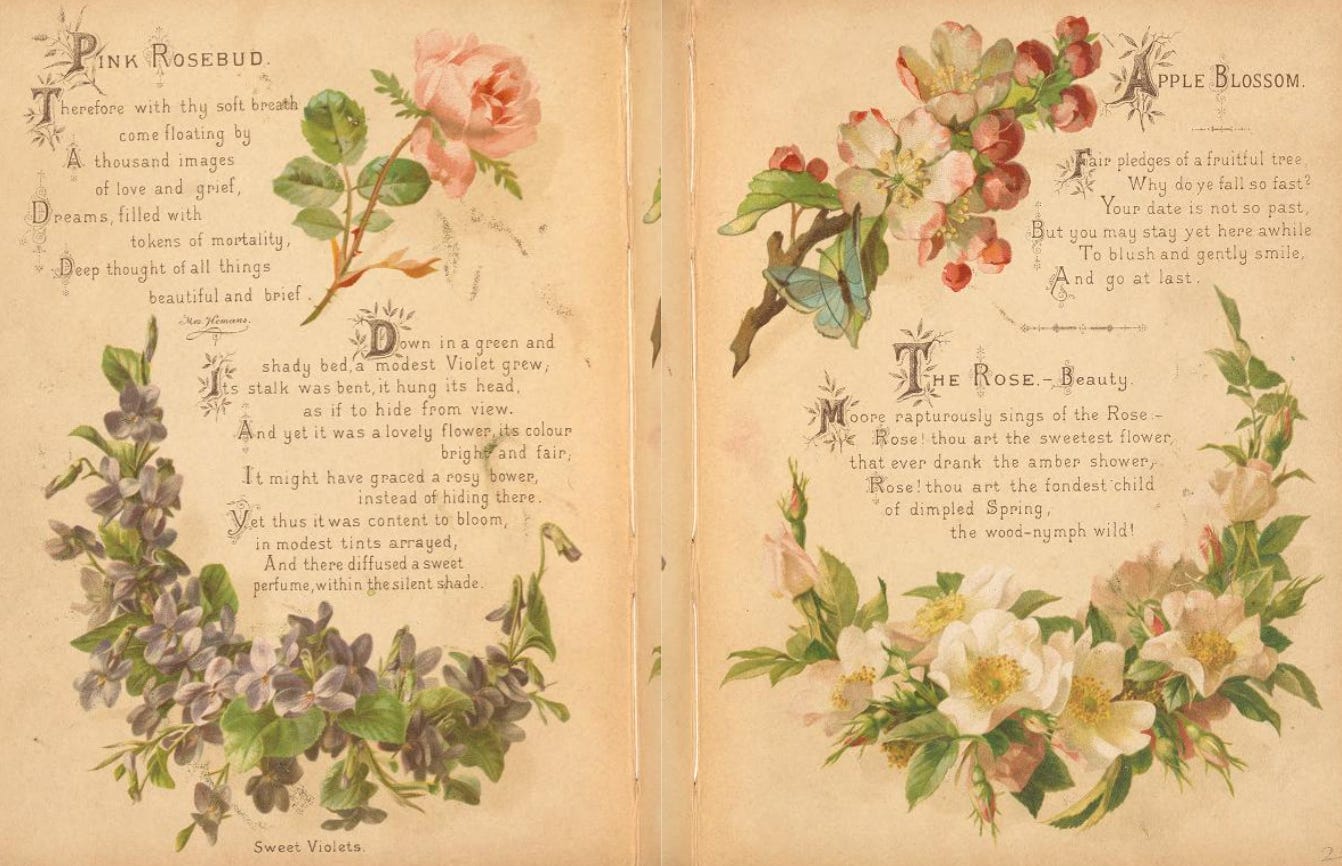 PINK ROSEBUD.
Therefore with thy soft breath
come floating by
A thousand images
of love and grief,
Dreams, filled with
tokens of mortality,
Deep thought of all things
beautiful and brief.
Mrs. Hemans.
Down in a green and
shady bed, a modest Violet grew;
Its stalk was bent, it hung its head,
as if to hide from view.
And yet it was a lovely flower, its colour
bright and fair;
It might have graced a rosy bower,
instead of hiding there.
Yet thus it was content to bloom,
in modest tints arrayed,
And there diffused a sweet
perfume, within the silent shade.
Sweet Violets.
APPLE BLOSSOM.
Fair pledges of a fruitful tree,
Why do ye fall so fast?
Your date is not so past,
But you may stay yet here awhile
To blush and gently smile,
And go at last.
THE ROSE.- Beauty.
Moore rapturously sings of the Rose:-
Rose! thou art the sweetest flower,
that ever drank the amber shower,
Rose! thou art the fondest child
of dimpled Spring,
the wood-nymph wild!